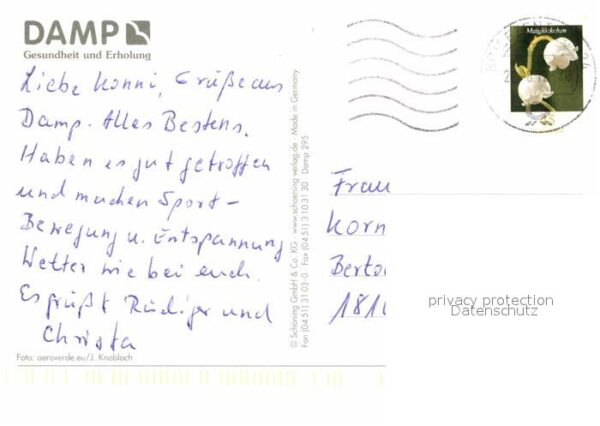 DAMP
Gesundheit und Erholung
Liebe Konni, Grüße aus
Damp. Alles Bestens.
Haben es gut getroffen
und machen Sport-
Bewegung u. Entspannung
Wetter wie bei euch.
Es grüßt Rüdiger und
Christa
Foto: aeroverde.eu/J. Knobloch
© Schöning GmbH & Co. KG · www.schoening-verlag.de · Made in Germany
Fon (04 51) 31 03-0 · Fax (04 51) 3 10 31 30 Damp 295
Maiglöckchen
Frau
Korn
Berto
1810
privacy protection
Datenschutz